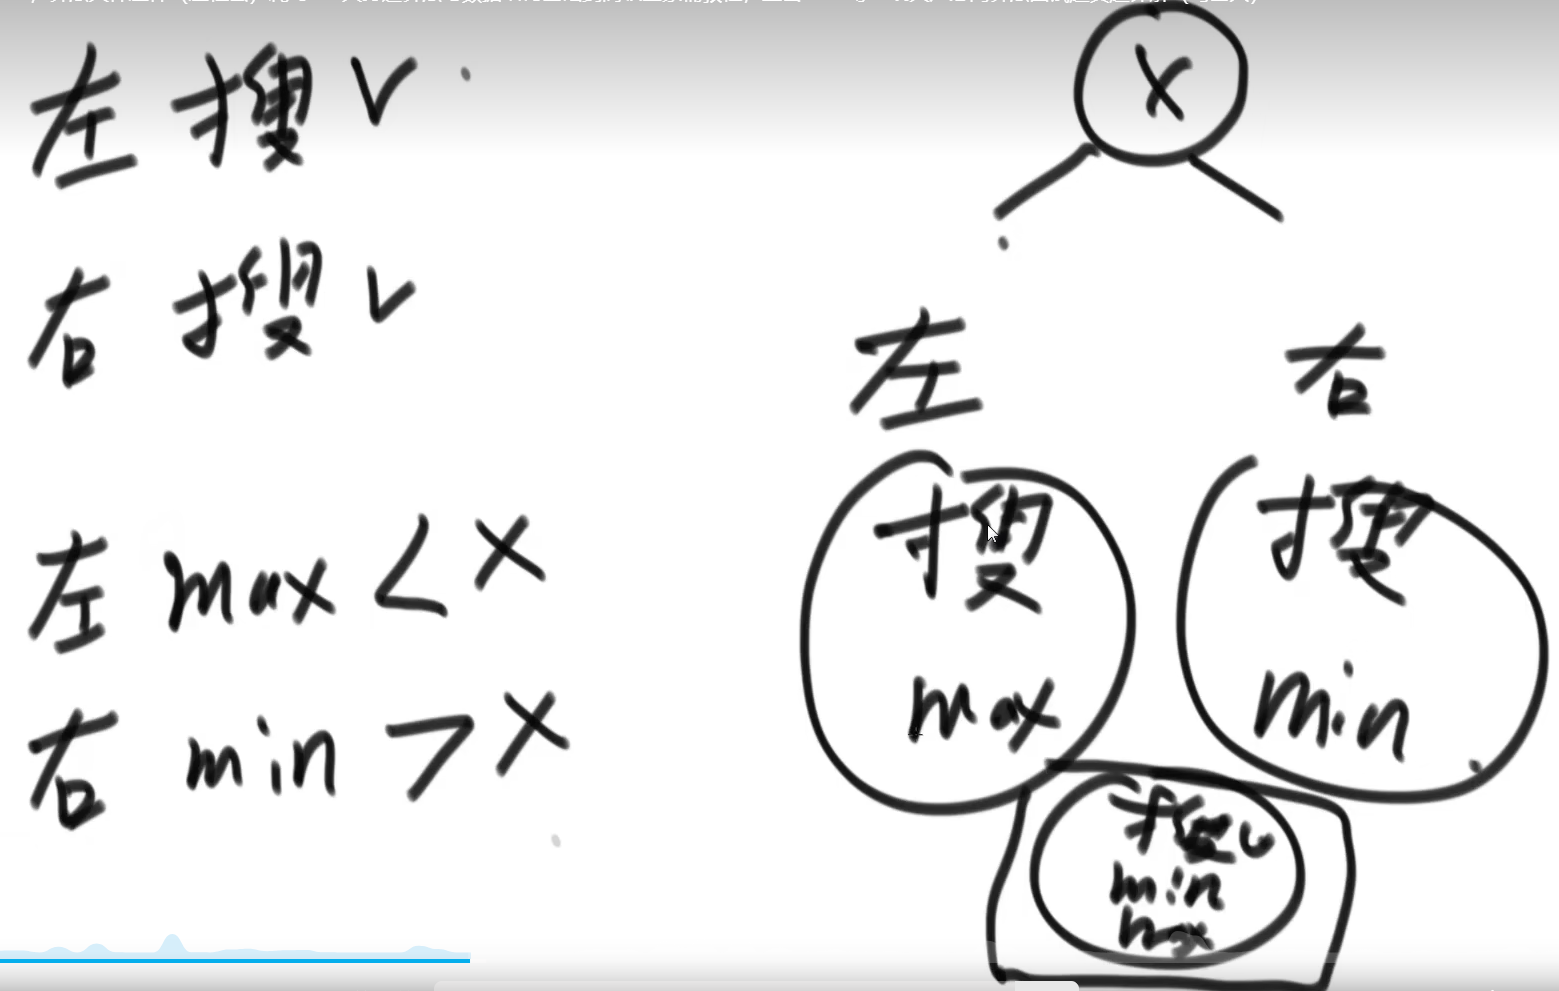 左 搜 ✓
右 搜 ✓
左 max < X
右 min > X
X
左 右
搜 搜
max min
搜 ✓
min
max